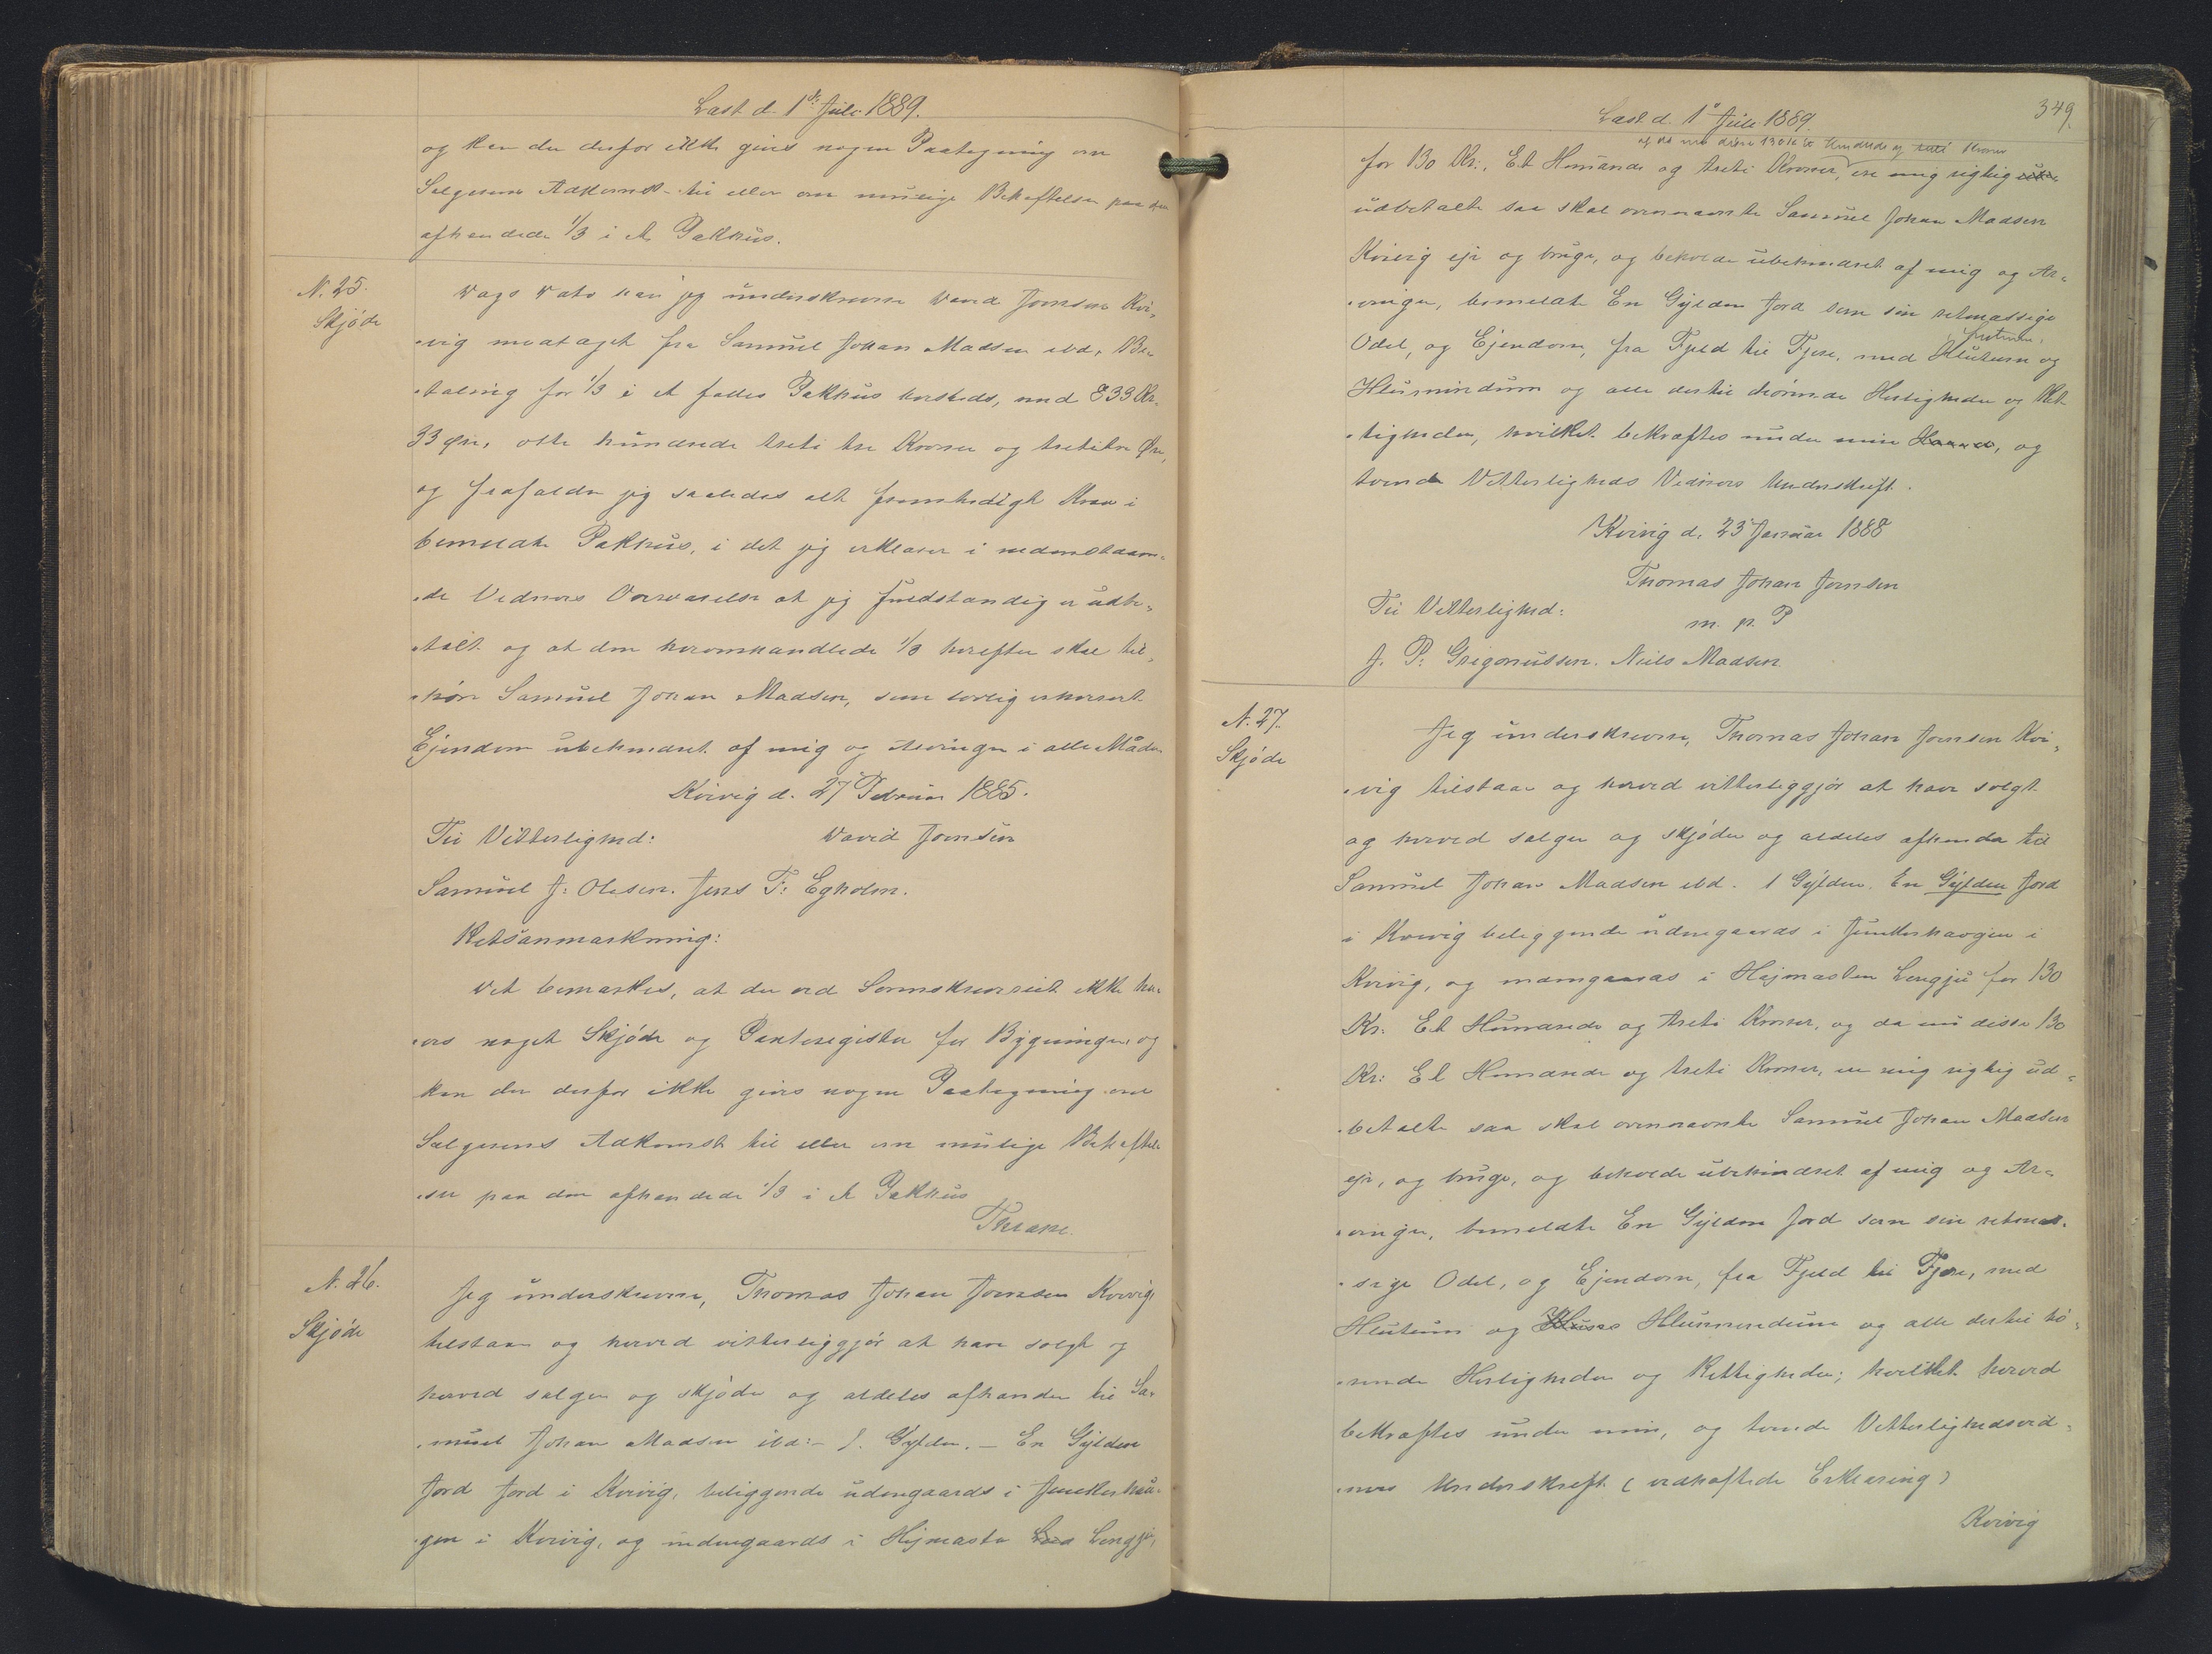 Læst d. 1ste Juli 1889.
og kan der derfor ikke gives nogen Paategning om
Sælgerens Adkomst til eller om mulige Behæftelser paa den
afhændede 1/3 i et Pakhus.
N. 25.
Skjøde
Dags Dato har jeg underskrevne David Joensen Kvi-
vig modtaget fra Samuel Johan Madsen ibd. Be-
taling for 1/3 i et fælles Pakhus hersteds, med 833 Kr.
33 Øre, otte hundrede treti tre Kroner og tretitre Øre,
og frafalder jeg saaledes alt fremtidigt Krav i
bemeldte Pakhus, i det jeg erklærer i nedenstaaen-
de Vidners Overværelse at jeg fuldstændig er udbe-
talt og at den heromhandlede 1/3 herefter skal til-
høre Samuel Johan Madsen, som lovlig erhvervet
Ejendom ubehindret af mig og Arvinger i alle Måder
Kvivig d. 27 Februar 1885.
Til Vitterlighed: David Joensen
Samuel J: Olesen. Jens F: Egholm.
Retsanmærkning:
Det bemærkes, at der ved Sorenskriveriet ikke ha-
ves noget Skjøde og Panteregister for Bygninger og
kan der derfor ikke gives nogen Paategning om
Sælgerens Adkomst til eller om mulige Behæftel-
ser paa den afhændede 1/3 i et Pakhus
Thrane.
N. 26.
Skjøde
Jeg underskrevne, Thomas Johan Joensen Kvivig
tilstaar og herved vitterliggjør at have solgt og
herved sælger og skjøder og aldeles afhænder til Sa-
muel Johan Madsen ibd:- 1. Gylden. - En Gylden
Jord Jord i Kvivig, beliggende udengaards i Junkerhau-
gen i Kvivig, og indengaards i Højmasta Len Lengju,
Læst d. 1ste Juli 1889.
349.
og da nu disse 130 Kr Et Hundrede og treti Kroner
for 130 Kr:, Et Hundrede og treti Kroner, ere mig rigtig
udbetalte saa skal ovennævnte Samuel Johan Madsen
Kvivig eje og bruge, og beholde ubehindret af mig og Ar-
vinger, bemeldte En Gylden Jord som sin retmæssige
Odel, og Ejendom, fra Fjeld til Fjære, med Hlutum og
Hlunnindum og alle dertil hørende Herligheder og Ret-
tigheder, hvilket bekræftes under min Haand, og
tvende Vitterligheds Vidners Underskrift.
Kvivig d. 23 Januar 1888
Thomas Johan Joensen
Til Vitterlighed: m. p. P
J. P: Gregoriussen. Niels Madsen
N. 27.
Skjøde
Jeg underskrevne, Thomas Johan Joensen Kvi-
vig tilstaar og herved vitterliggjør at have solgt
og herved sælger og skjøder og aldeles afhænder til
Samuel Johan Madsen ibd. 1 Gylden. En Gylden Jord
i Kvivig beliggende udengaards i Junkerhavgen i
Kvivig, og indengaards i Højmasten Lengju for 130
Kr: Et Hundrede og treti Kroner, og da nu disse 130
Kr: Et Hundrede og treti Kroner, er mig rigtig ud-
betalte saa skal ovennævnte Samuel Johan Madsen
eje, og bruge, og beholde ubehindret af mig og Ar-
vinger, bemeldte En Gylden Jord som sin retmæs-
sige Odel, og Ejendom, fra Fjeld til Fjære, med
Hlutum og Hluns Hlunnendum og alle dertil hø-
rende Herligheder og Rettigheder; hvilket herved
bekræftes under min, og tvende Vitterlighedsvid-
ners Underskrift (vedhæftede Erklæring)
Kvivig